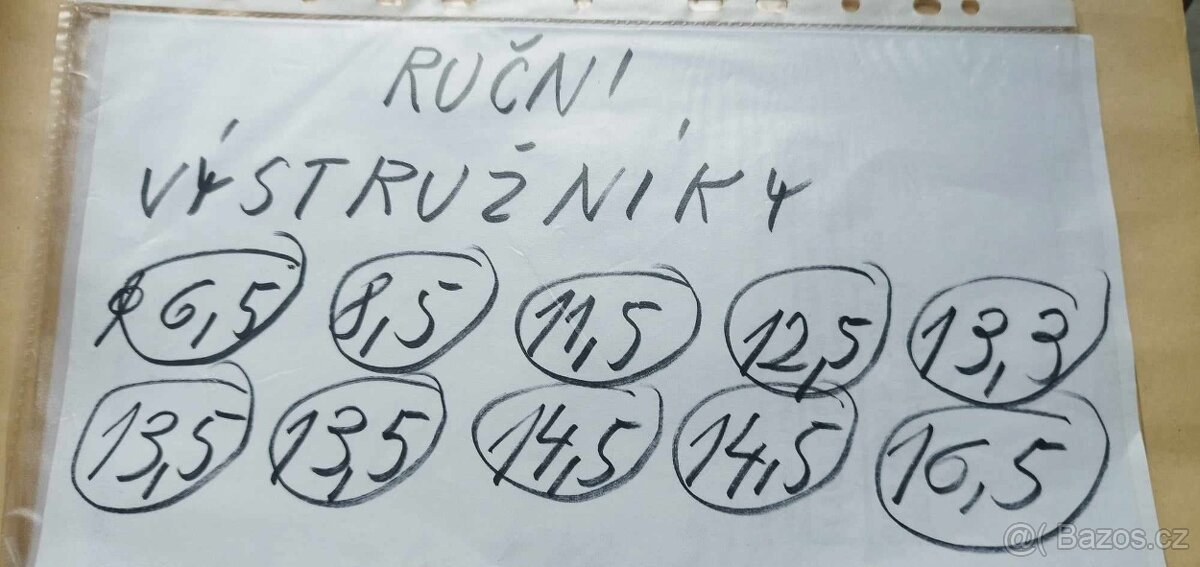 RUČNI
VÝSTRUŽNÍKY
ø 6,5 8,5 11,5 12,5 13,3
13,5 13,5 14,5 14,5 16,5
@( Bazos.cz